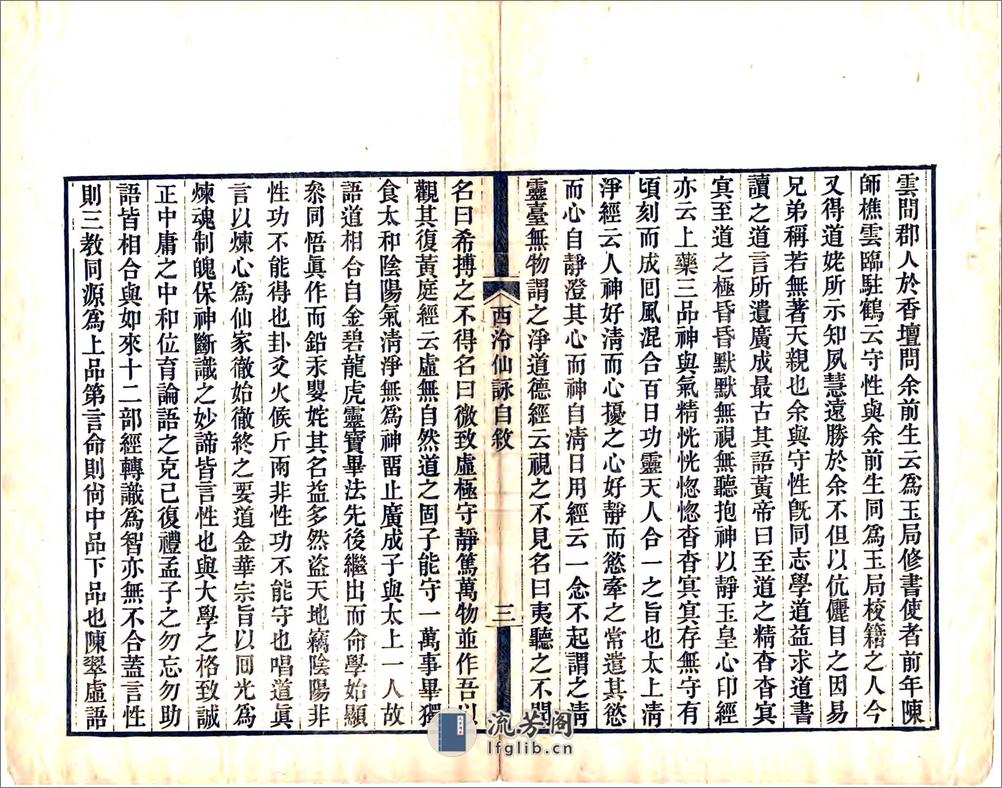 雲間郡人於香壇問余前生云為玉局修書使者前年陳
師樵雲臨駐鶴云守性與余前生同為玉局校籍之人今
又得道姥所示知夙慧遠勝於余不但以伉儷目之因易
兄弟稱若無著天親也余與守性旣同志學道益求道書
讀之道言所遺廣成最古其語黃帝曰至道之精杳杳冥
冥至道之極昏昏默默無視無聽抱神以靜玉皇心印經
亦云上藥三品神與氣精恍恍惚惚杳杳冥冥存無守有
頃刻而成囘風混合百日功靈天人合一之旨也太上清
淨經云人神好清而心擾之心好靜而慾牽之常遣其慾
而心自靜澄其心而神自清日用經云一念不起謂之清
靈臺無物謂之淨道德經云視之不見名曰夷聽之不聞
西泠仙詠自敘
三
名曰希摶之不得名曰微致虛極守靜篤萬物並作吾以
觀其復黃庭經云虛無自然道之固子能守一萬事畢獨
食太和陰陽氣清淨無為神畱止廣成子與太上一人故
語道相合自金碧龍虎靈寶畢法先後繼出而命學始顯
叅同悟眞作而鉛汞嬰姹其名益多然盜天地竊陰陽非
性功不能得也卦爻火候斤兩非性功不能守也唱道眞
言以煉心為仙家徹始徹終之要道金華宗旨以囘光為
煉魂制魄保神斷識之妙諦皆言性也與大學之格致誠
正中庸之中和位育論語之克己復禮孟子之勿忘勿助
語皆相合與如來十二部經轉識為智亦無不合蓋言性
則三教同源為上品第言命則尙中品下品也陳翠虛語
流芳阁
lfglib.cn